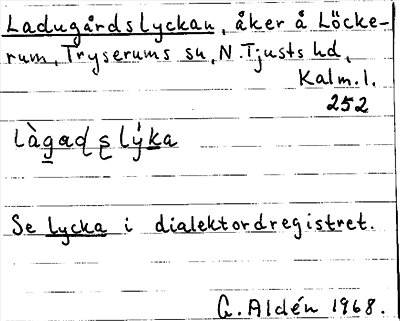 Ladugårdslyckan, åker å Löcke-
rum, Tryserums sn, N. Tjusts hd,
Kalm. l.
252
làgaḍ ṣ lýka
Se lycka i dialektordregistret.
G. Aldén 1968.